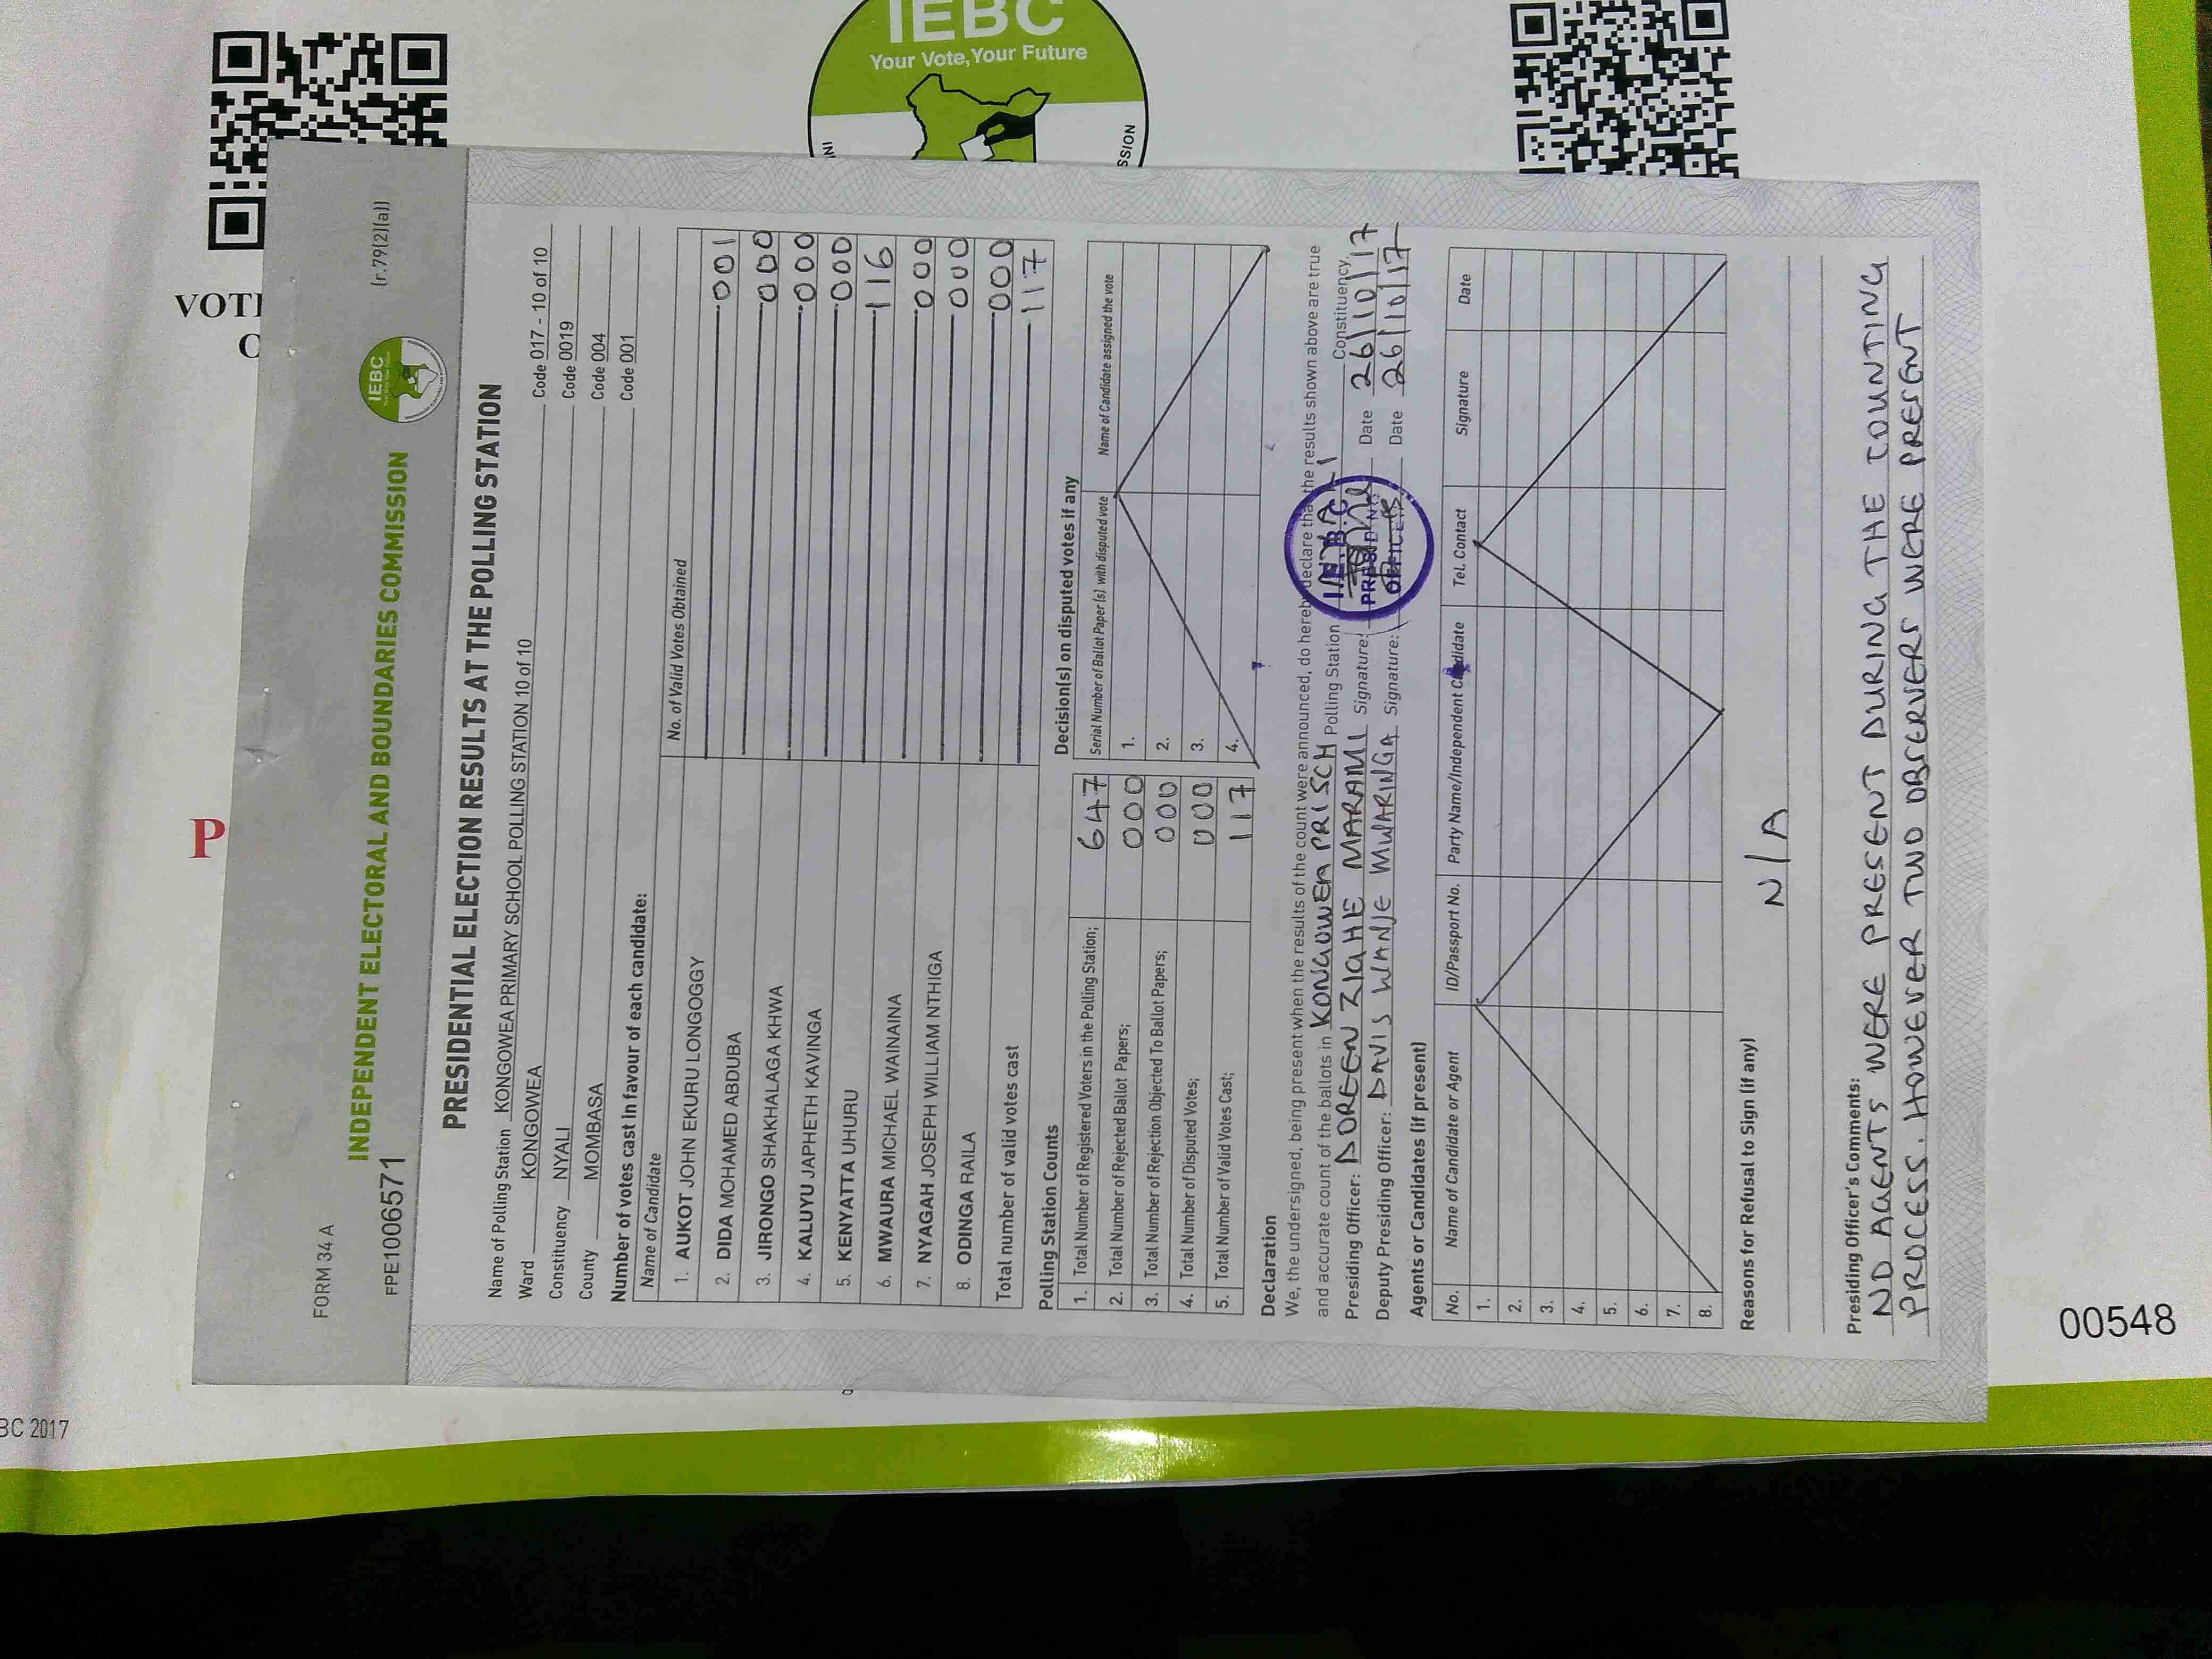 FORM 34 A
(r.79(2)(a))
INDEPENDENT ELECTORAL AND BOUNDARIES COMMISSION
IEBC
FPE1006571
PRESIDENTIAL ELECTION RESULTS AT THE POLLING STATION
Name of Polling Station KONGOWEA PRIMARY SCHOOL POLLING STATION 10 of 10 Code 017 - 10 of 10
Ward KONGOWEA Code 0019
Constituency NYALI Code 004
County MOMBASA Code 001
Number of votes cast in favour of each candidate:
Name of Candidate No. of Valid Votes Obtained
1. AUKOT JOHN EKURU LONGOGGY 001
2. DIDA MOHAMED ABDUBA 000
3. JIRONGO SHAKHALAGA KHWA 000
4. KALUYU JAPHETH KAVINGA 000
5. KENYATTA UHURU 116
6. MWAURA MICHAEL WAINAINA 000
7. NYAGAH JOSEPH WILLIAM NTHIGA 000
8. ODINGA RAILA 000
Total number of valid votes cast 117
Polling Station Counts
1. Total Number of Registered Voters in the Polling Station; 647
2. Total Number of Rejected Ballot Papers; 000
3. Total Number of Rejection Objected To Ballot Papers; 000
4. Total Number of Disputed Votes; 000
5. Total Number of Valid Votes Cast; 117
Decision(s) on disputed votes if any
Serial Number of Ballot Paper (s) with disputed vote Name of Candidate assigned the vote
1.
2.
3.
4.
Declaration
We, the undersigned, being present when the results of the count were announced, do hereby declare that the results shown above are true
and accurate count of the ballots in KONGOWEA PRI SCH Polling Station Constituency.
Presiding Officer: DOREEN ZIAHE MARAMI Signature: Date 26/10/17
Deputy Presiding Officer: DAVIS WANJE MWARINGA Signature: Date 26/10/17
I.E.B.C
PRESIDING
OFFICER
Agents or Candidates (if present)
No. Name of Candidate or Agent ID/Passport No. Party Name/Independent Candidate Tel. Contact Signature Date
1.
2.
3.
4.
5.
6.
7.
8.
Reasons for Refusal to Sign (if any)
N/A
Presiding Officer's Comments:
NO AGENTS WERE PRESENT DURING THE COUNTING
PROCESS. HOWEVER TWO OBSERVERS WERE PRESENT
IEBC
Your Vote, Your Future
SSION
VOTI
P
BC 2017
00548